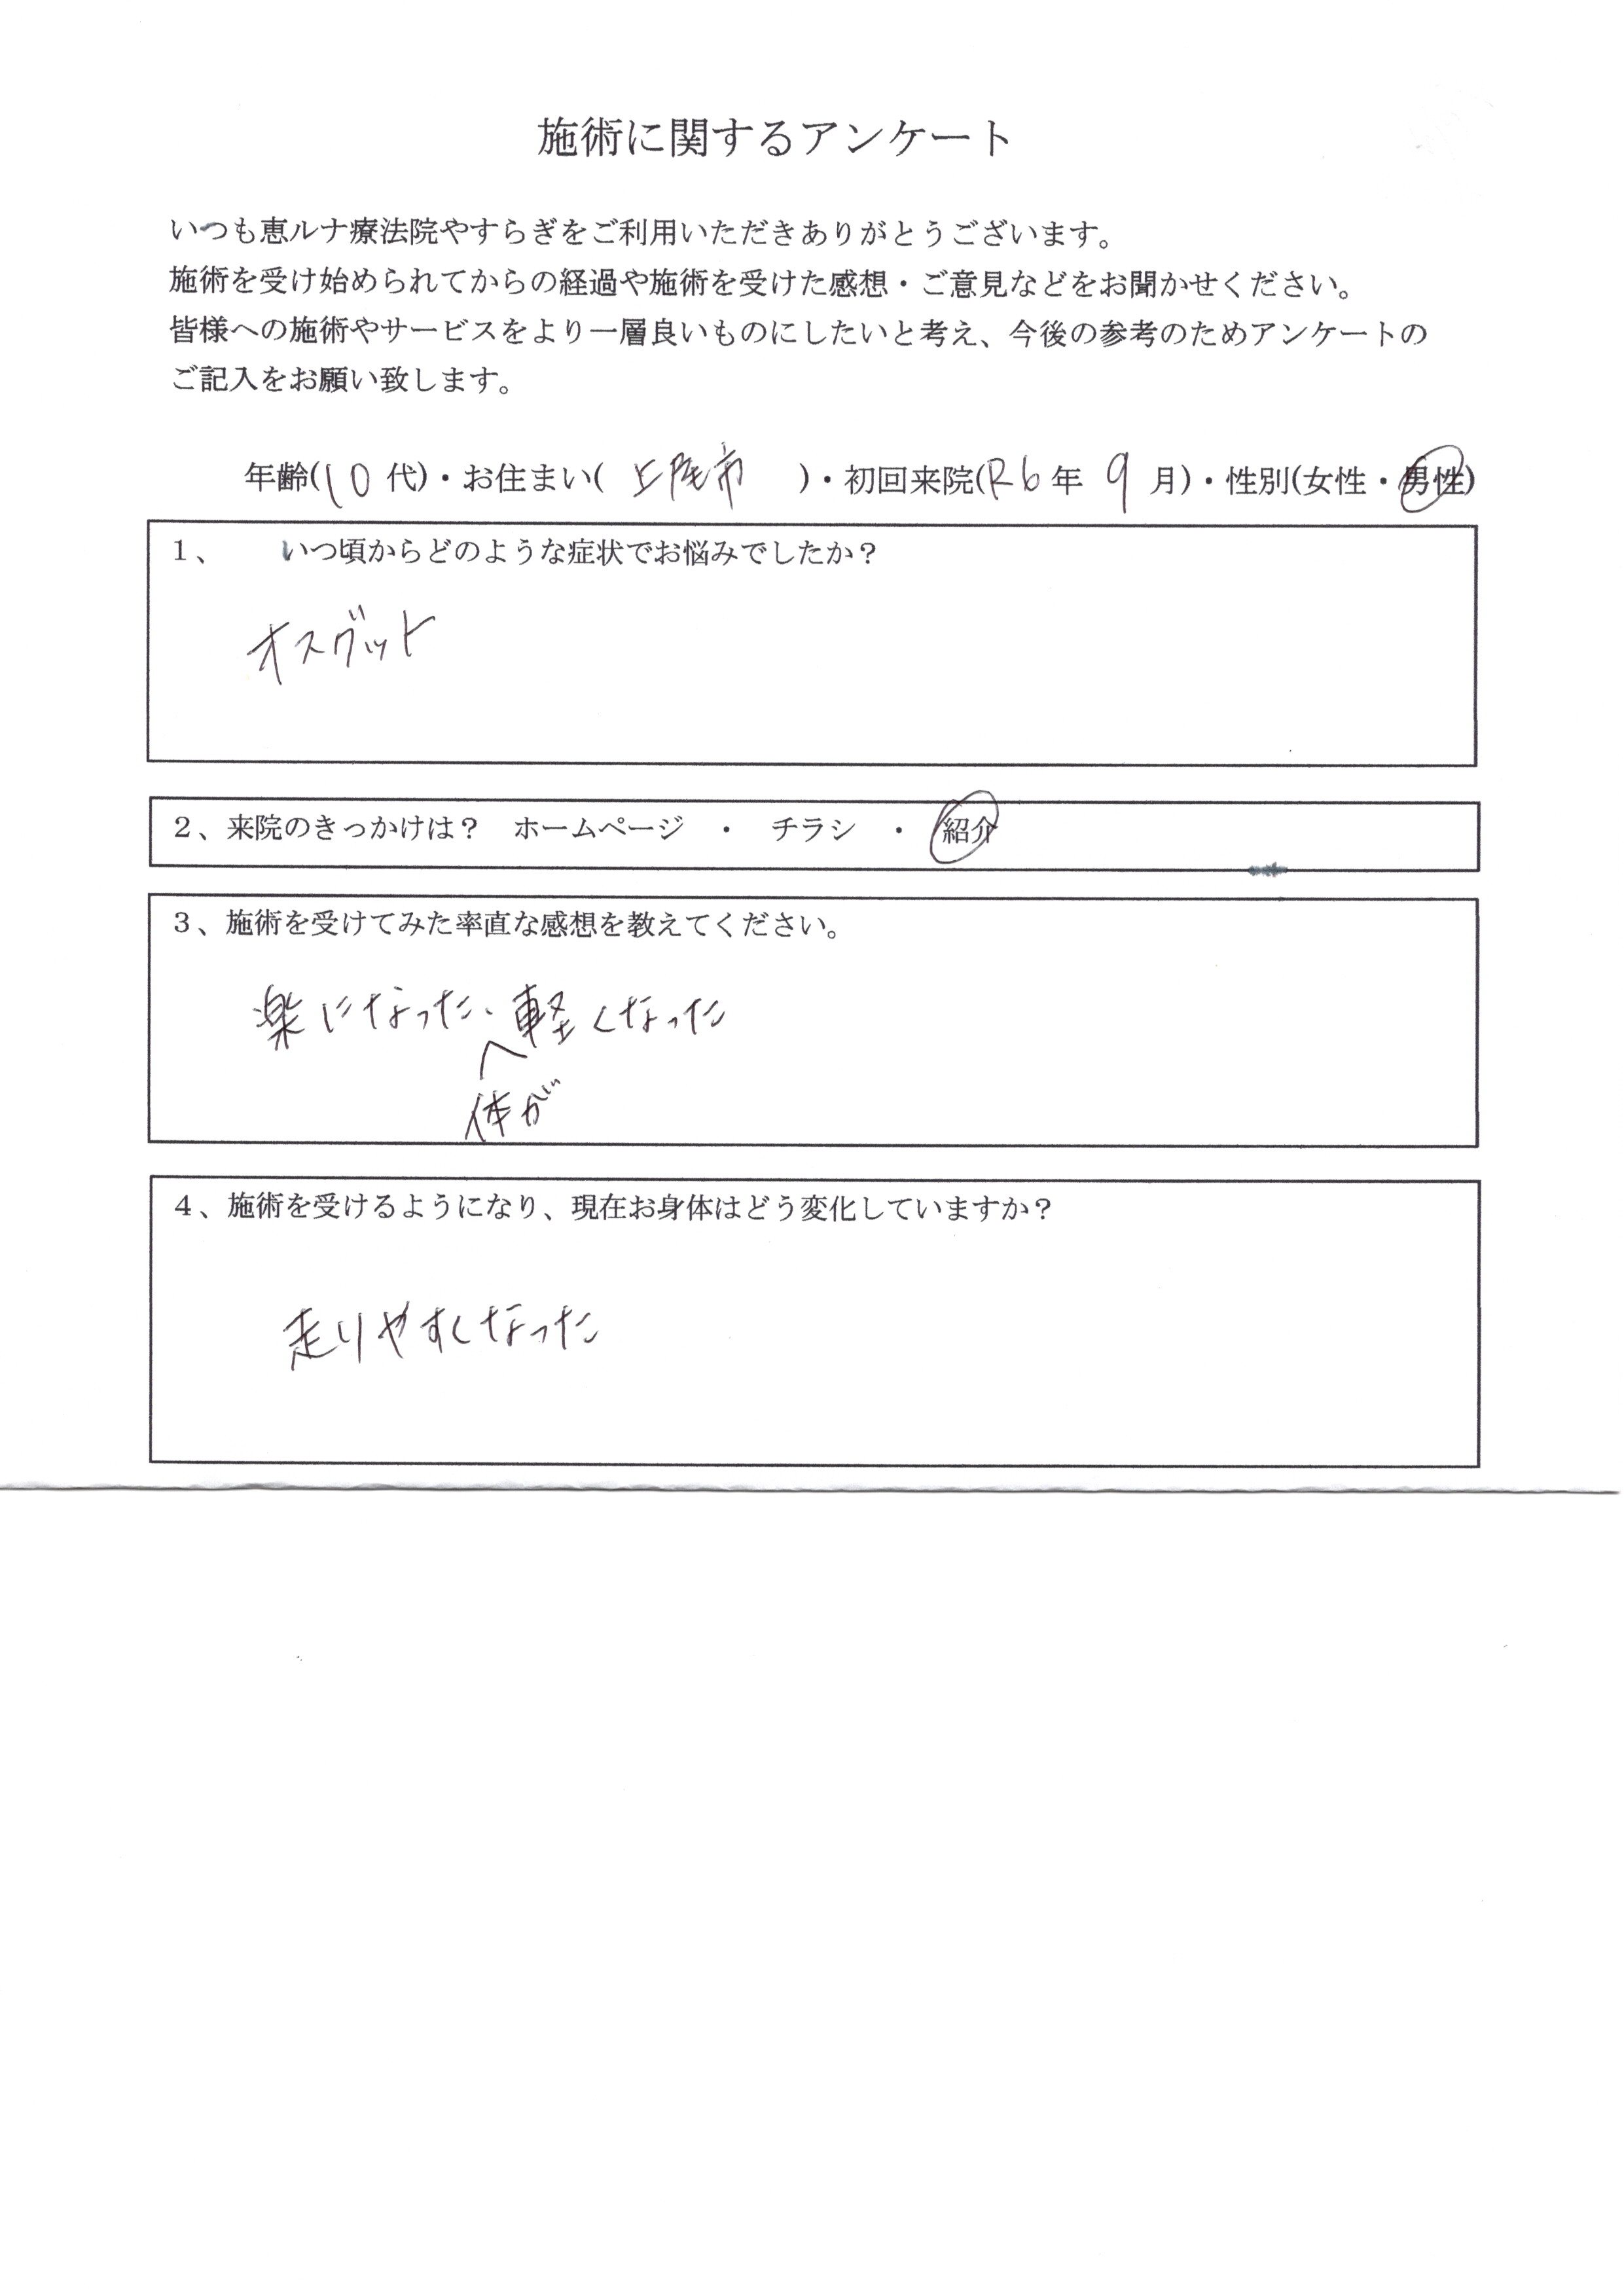 施術に関するアンケート
いつも恵ルナ療法院やすらぎをご利用いただきありがとうございます。
施術を受け始められてからの経過や施術を受けた感想・ご意見などをお聞かせください。
皆様への施術やサービスをより一層良いものにしたいと考え、今後の参考のためアンケートの
ご記入をお願い致します。
年齢(10代)・お住まい( 上尾市 )・初回来院(R6年 9月)・性別(女性・男性)
1、 いつ頃からどのような症状でお悩みでしたか?
オスグット
2、来院のきっかけは? ホームページ ・ チラシ ・ 紹介
3、施術を受けてみた率直な感想を教えてください。
楽になった、軽くなった
体が
4、施術を受けるようになり、現在お身体はどう変化していますか?
走りやすくなった